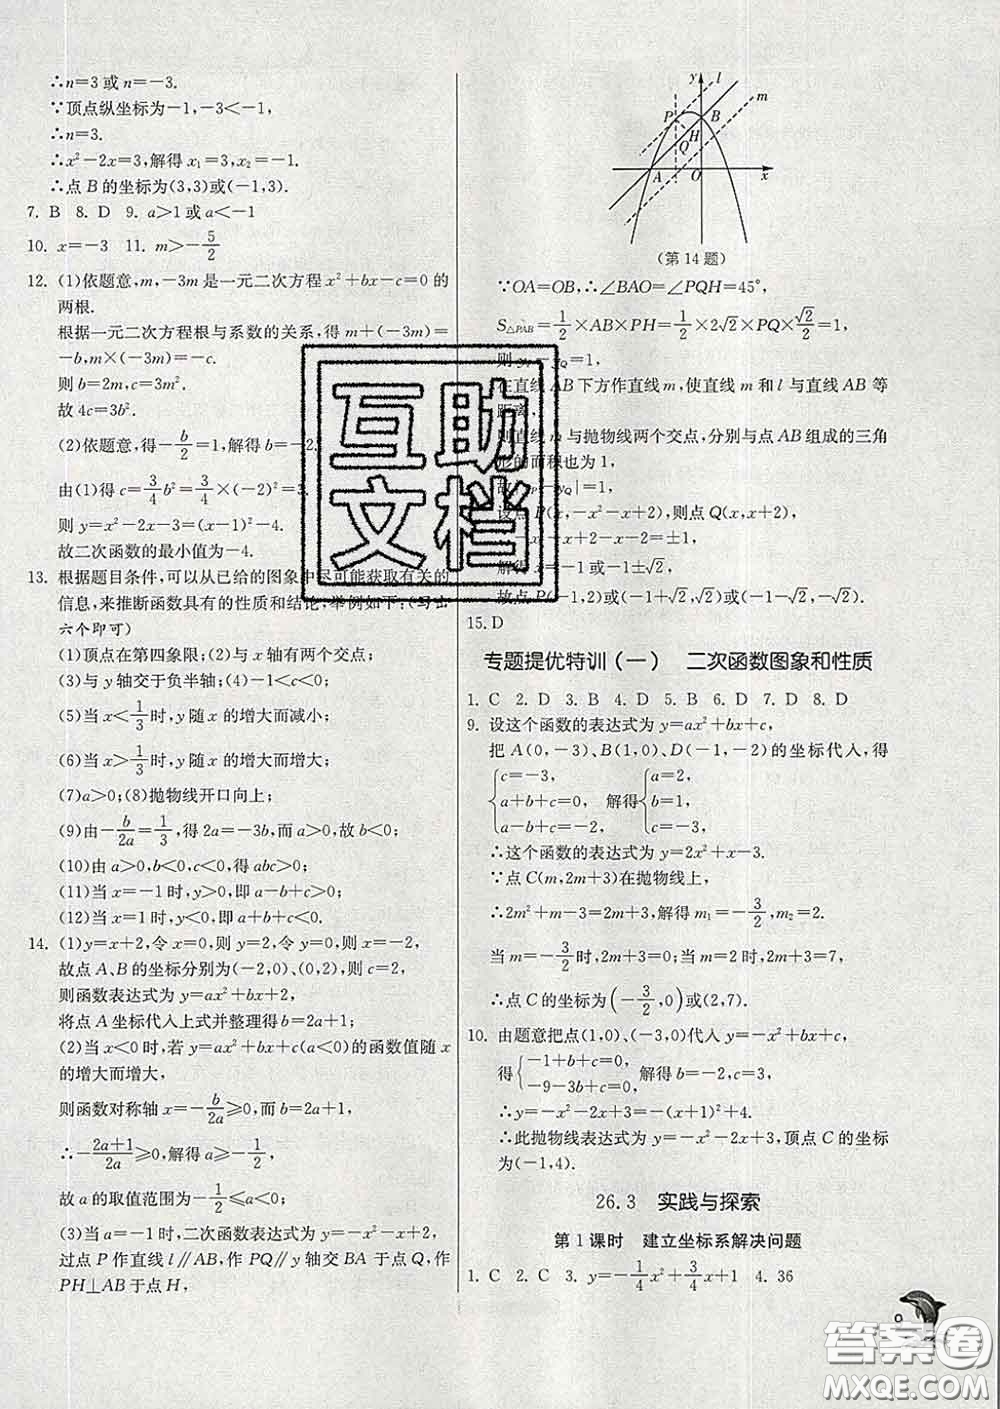 ∴n=3或n=-3.
∵顶点纵坐标为-1,-3<-1,
∴n=3.
∴x²-2x=3,解得x₁=3,x₂=-1.
∴点B的坐标为(3,3)或(-1,3).
7. B 8. D 9. a>1或a<-1
10. x=-3 11. m>-5/2
12. (1)依题意,m,-3m是一元二次方程x²+bx-c=0的
两根.
根据一元二次方程根与系数的关系,得m+(-3m)=
-b,m×(-3m)=-c.
则b=2m,c=3m².
故4c=3b².
(2)依题意,得-b/2=1,解得b=-2.
由(1)得c=3/4b²=3/4×(-2)²=3.
则y=x²-2x-3=(x-1)²-4.
故二次函数的最小值为-4.
13. 根据题目条件,可以从已给的图象中尽可能获取有关的
信息,来推断函数具有的性质和结论,举例如下:(写出
六个即可)
(1)顶点在第四象限;(2)与x轴有两个交点;
(3)与y轴交于负半轴;(4)-1<c<0;
(5)当x<1/3时,y随x的增大而减小;
(6)当x>1/3时,y随x的增大而增大;
(7)a>0;(8)抛物线开口向上;
(9)由-b/2a=1/3,得2a=-3b,而a>0,故b<0;
(10)由a>0,b<0,c<0,得abc>0;
(11)当x=-1时,y>0,即a-b+c>0;
(12)当x=1时,y<0,即a+b+c<0.
14. (1)y=x+2,令x=0,则y=2,令y=0,则x=-2,
故点A、B的坐标分别为(-2,0)、(0,2),则c=2,
则函数表达式为y=ax²+bx+2,
将点A坐标代入上式并整理得b=2a+1;
(2)当x<0时,若y=ax²+bx+c(a<0)的函数值随x
的增大而增大,
则函数对称轴x=-b/2a≥0,而b=2a+1,
∴-2a+1/2a≥0,解得a≥-1/2,
故a的取值范围为-1/2≤a<0;
(3)当a=-1时,二次函数表达式为y=-x²-x+2,
过点P作直线l∥AB,作PQ∥y轴交BA于点Q,作
PH⊥AB于点H,
y l m P B H Q A O x
(第14题)
∵OA=OB,∴∠BAO=∠PQH=45°,
S△PAB=1/2×AB×PH=1/2×2√2×PQ×√2/2=1,
则yP-yQ=1,
在直线AB下方作直线m,使直线m和l与直线AB等
距离,
则直线m与抛物线两个交点,分别与点AB组成的三角
形的面积也为1,
故|yP-yQ|=1,
设点P(x,-x²-x+2),则点Q(x,x+2),
-x²-x+2-x-2=±1,
解得x=-1或-1±√2,
故点P(-1,2)或(-1+√2,√2)或(-1-√2,-√2).
15. D
专题提优特训(一) 二次函数图象和性质
1. C 2. D 3. B 4. D 5. D 6. D 7. D 8. D
9. 设这个函数的表达式为y=ax²+bx+c,
把A(0,-3)、B(1,0)、D(-1,-2)的坐标代入,得
{c=-3, a+b+c=0, a-b+c=-2, 解得{a=2, b=1, c=-3,
∴这个函数的表达式为y=2x²+x-3.
∵点C(m,2m+3)在抛物线上,
∴2m²+m-3=2m+3,解得m₁=-3/2,m₂=2.
当m=-3/2时,2m+3=0;当m=2时,2m+3=7,
∴点C的坐标为(-3/2,0)或(2,7).
10. 由题意把点(1,0)、(-3,0)代入y=-x²+bx+c,
得{-1+b+c=0, -9-3b+c=0,解得b=-2,c=3.
∴y=-x²-2x+3=-(x+1)²+4.
∴此抛物线表达式为y=-x²-2x+3,顶点C的坐标
为(-1,4).
26.3 实践与探索
第1课时 建立坐标系解决问题
1. C 2. C 3. y=-1/4x²+3/4x+1 4. 36
互助
文档
答案圈
MXQE.COM